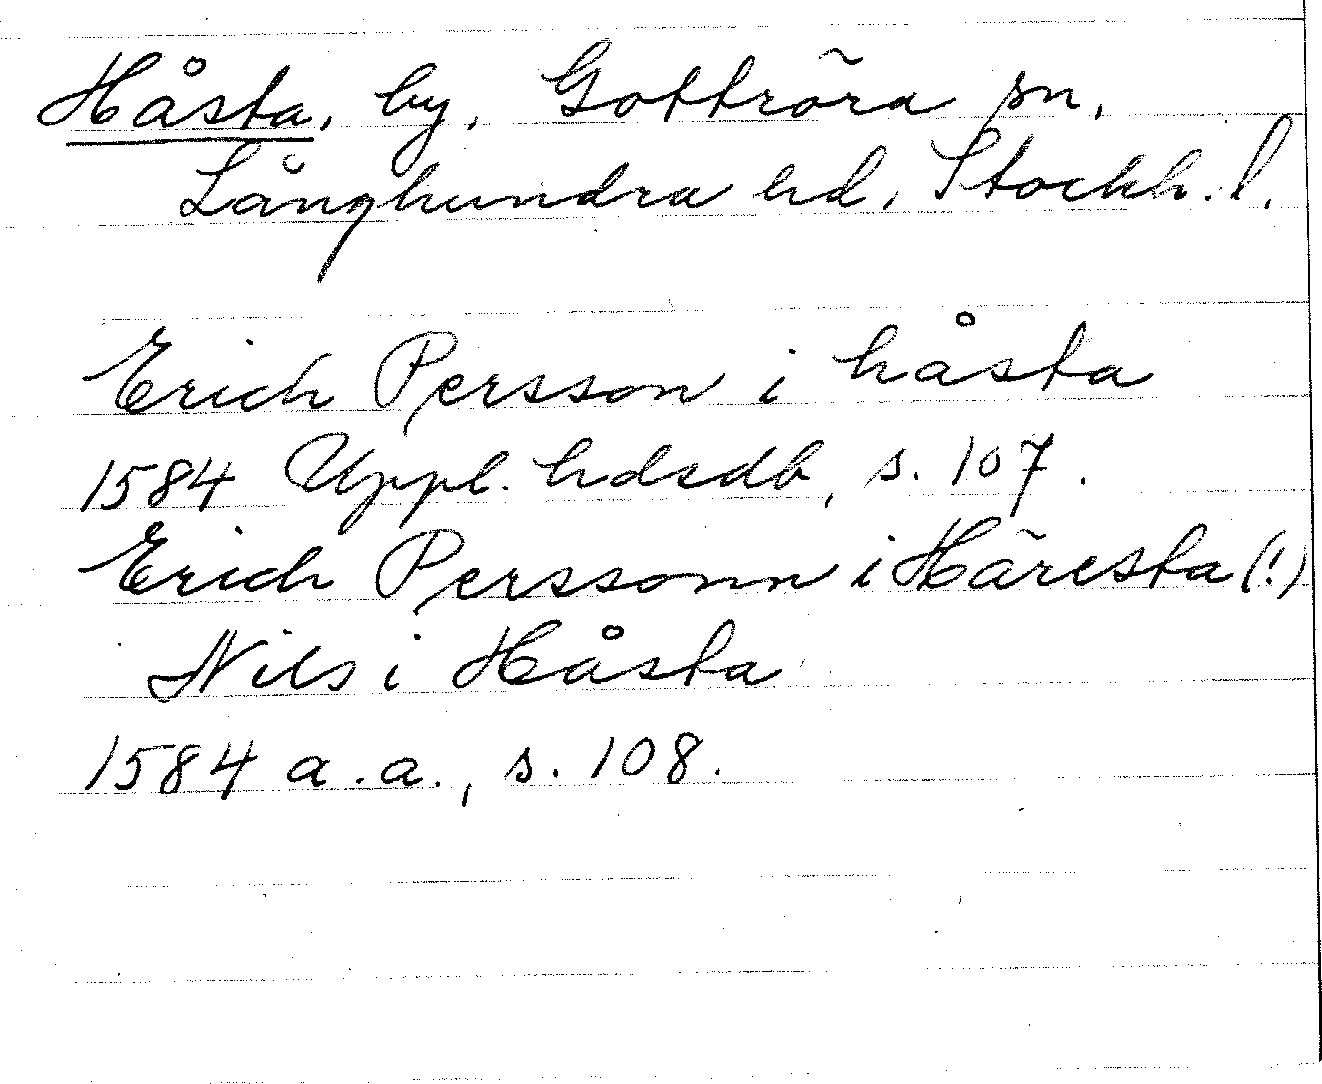 Håsta, by, Gottröra sn,
Långhundra hd, Stockh. l.
Erich Persson i håsta
1584 Uppl. hdsdb, s. 107.
Erich Perssonn i Häresta (!)
Nils i Håsta
1584 a.a., s. 108.